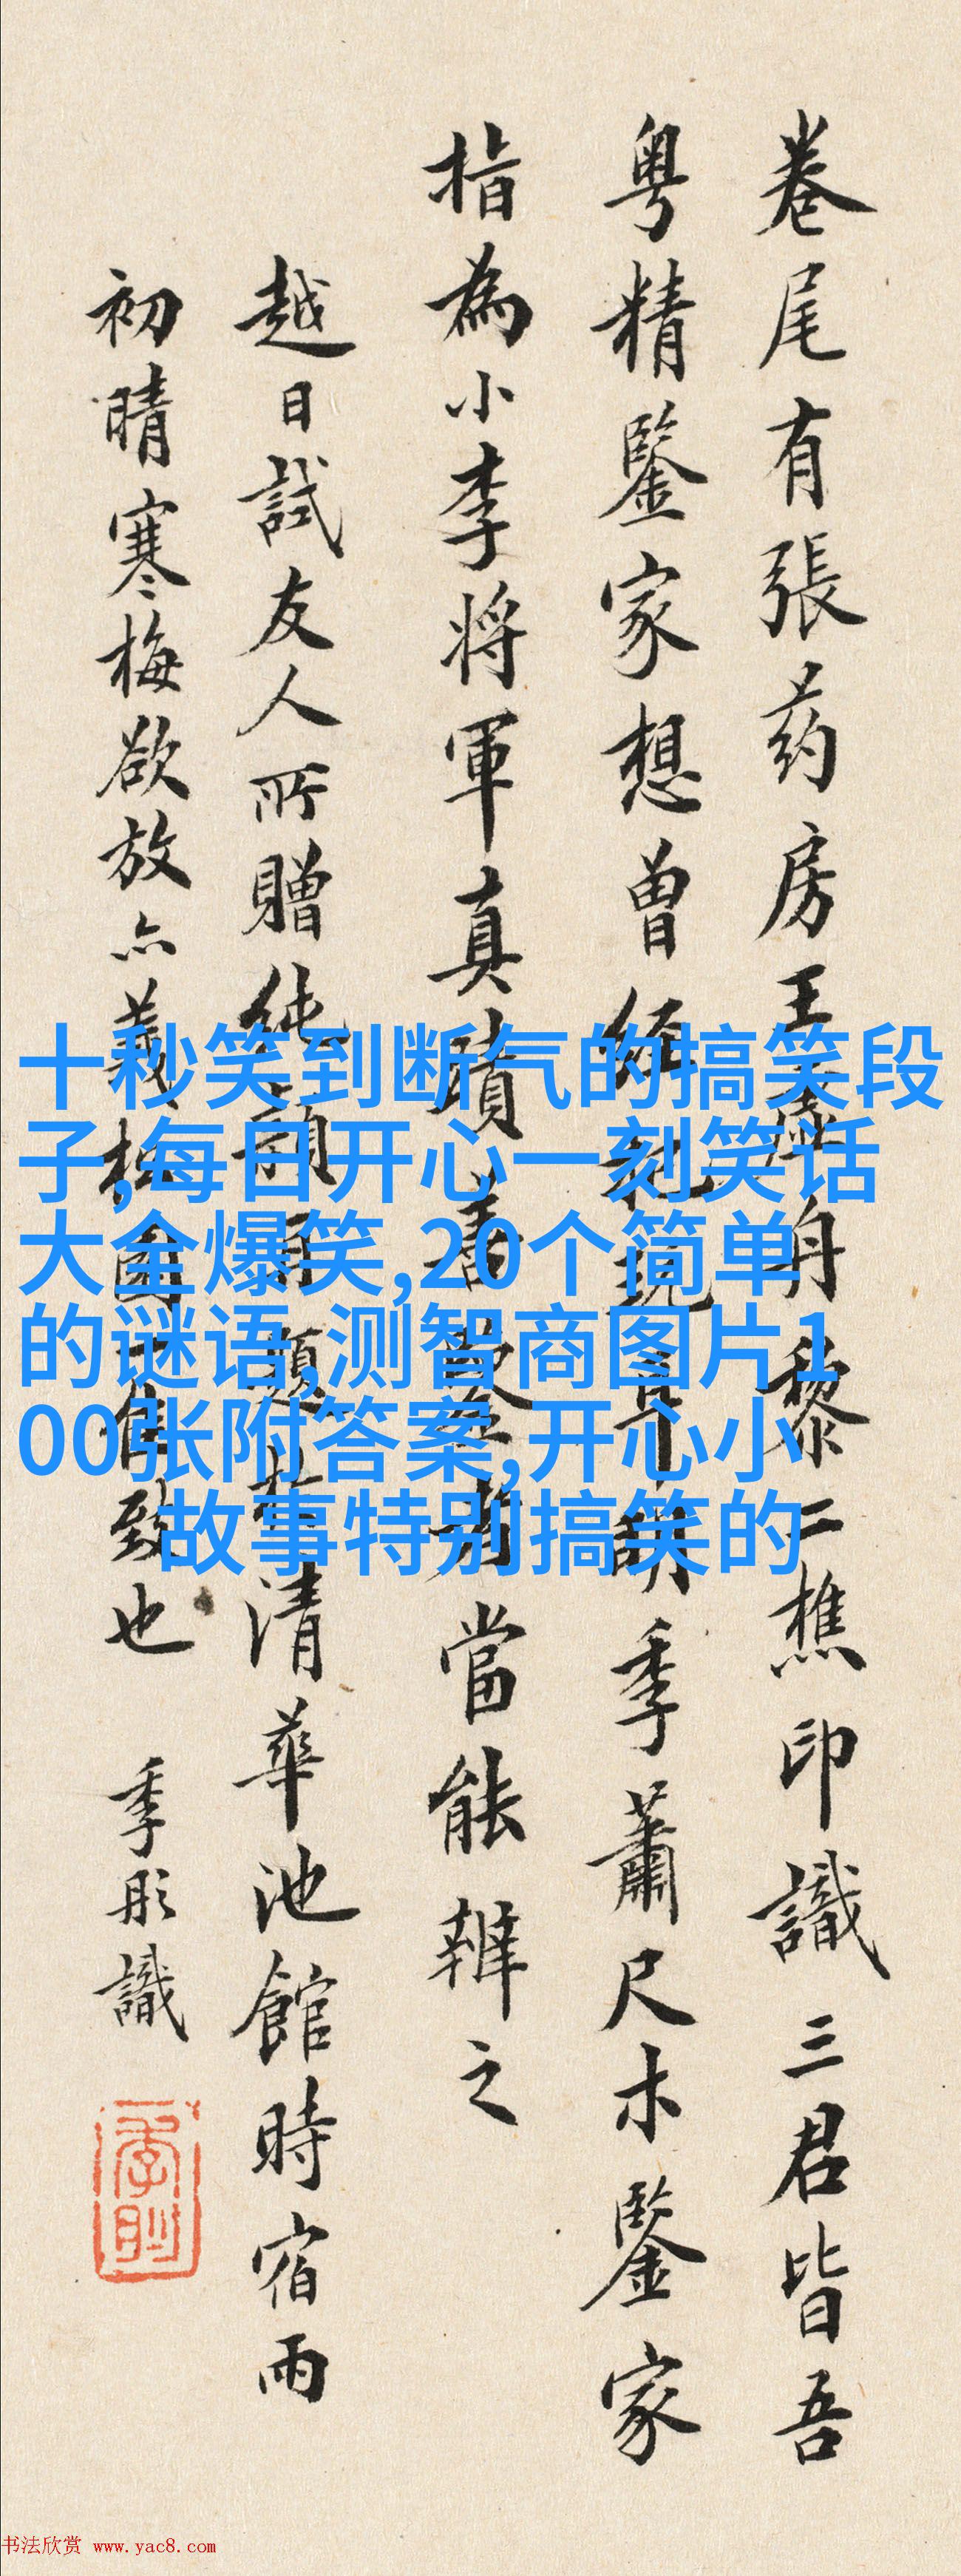 卷尾有張药房王虛舟黎二樵印識三君皆吾
粵精鑒家想曾經
季蕭尺木鑒家
指為小李将軍真蹟
當能辨之
越日試友人所贈純
清華池館時宿雨
初晴寒梅欲放亦義
致也
季彤識
十秒笑到断气的搞笑段
子,每日开心一刻笑话
大全爆笑,20个简单
的谜语,测智商图片1
00张附答案,开心小
故事特别搞笑的
书法欣赏 www.yac8.com